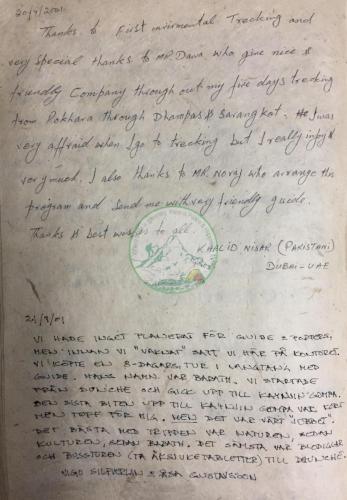 20/9/2001.
Thanks to First invirmental Trecking and
very special thanks to MR. Dawa who give nice &
friendly Company through out my five days trecking
from Pokhara through Dhampas & Sarangkot. He I was
very affraid when I go to trecking but I really injoy
very much. I also thanks to MR. Noraj who arrange this
program and send me with very friendly guide.
Thanks & best wishes to all.
KHALID NISAR (PAKISTANI)
DUBAI-UAE
VI HADE INGET PLANERAT FÖR GUIDE & PORTERS,
MEN INNAN VI "VAKNAT" SATT VI HÄR PÅ KONTORET.
VI KÖPTE EN 8-DAGARS TUR I LANGTANG MED
GUIDE. HANS NAMN VAR BADATH. VI STARTADE
FRÅN DUNCHE OCH GICK UPP TILL KAYNJIN GOMPA.
DEN SISTA BITEN UPP TILL KAYNJIN GOMPA VAR
MEN TUFF FÖR MIG. MEN DET VAR VÄRT "JOBBET".
DET BÄSTA MED TRIPPEN VAR NATUREN, SEDAN
KULTUREN, SEDAN BADATH. DET SÄMSTA VAR BLODIGLAR
OCH BUSSTUREN (TA ÅKSJUKETABLETTER) TILL DUNCHE.
VIGO SILFVERLIN & ÅSA GUSTAVSSON